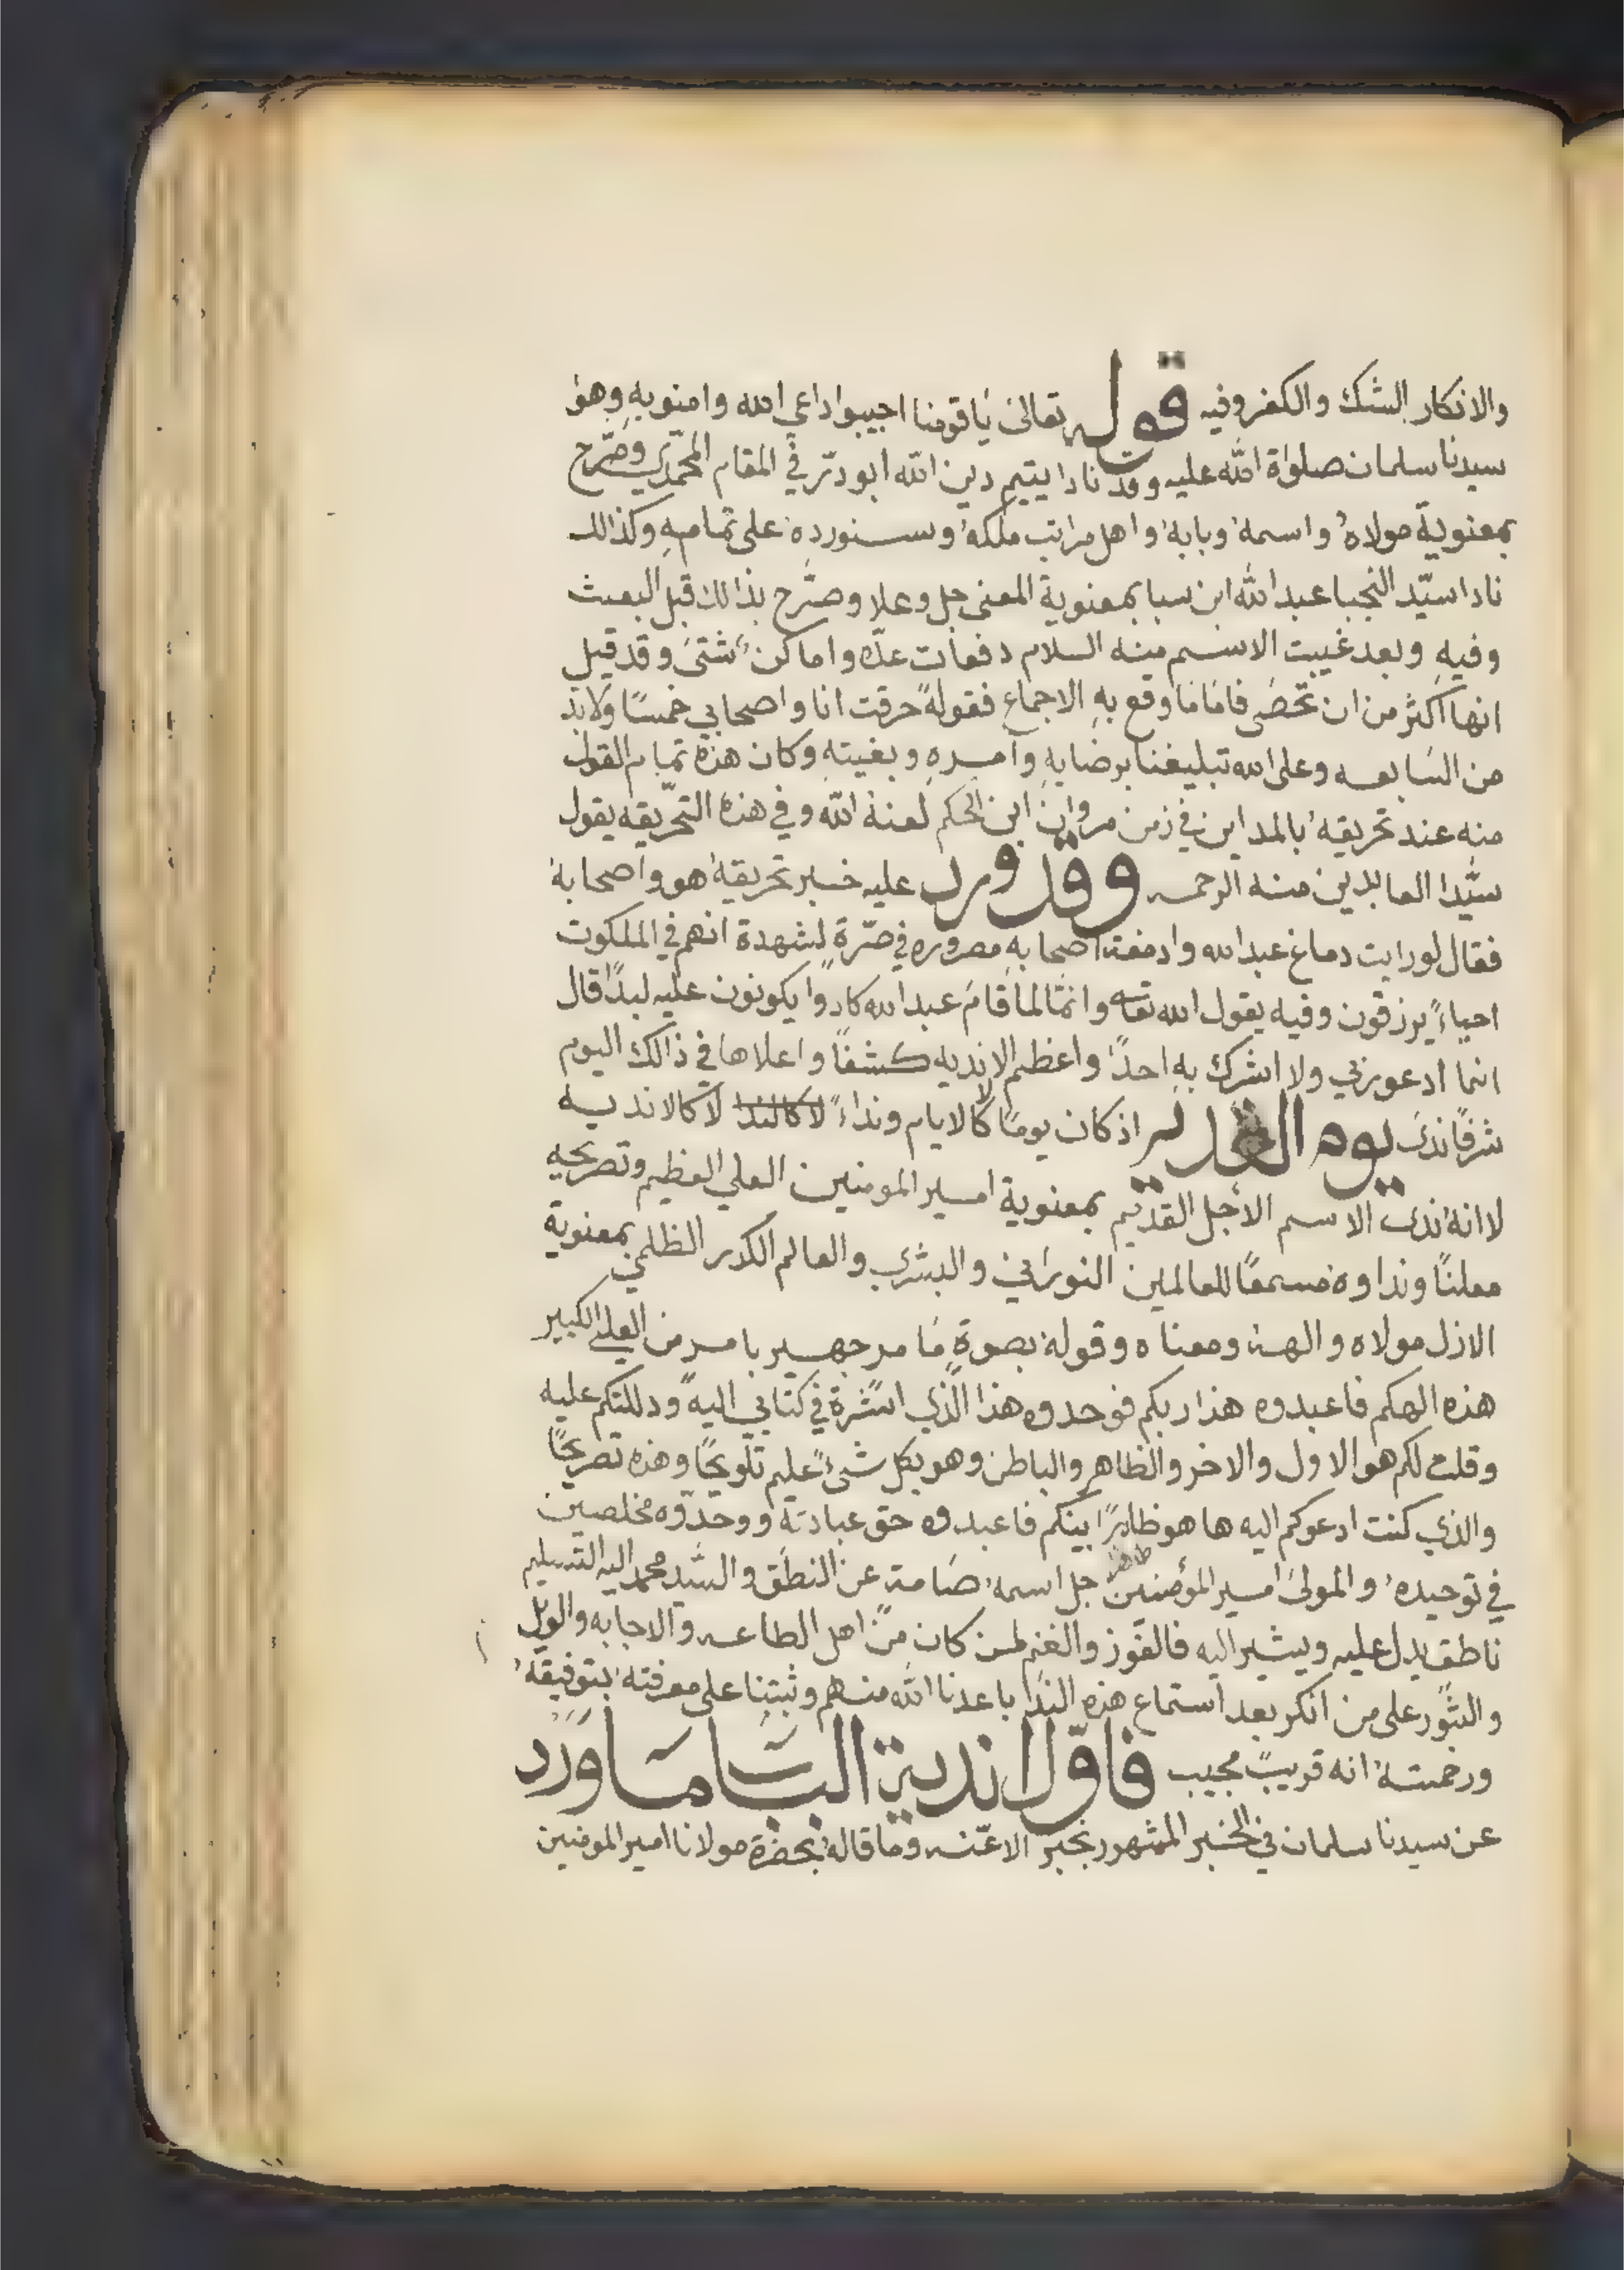 والانكار الشك والكفر وفيه قوله تعالى ياقومنا اجيبوا داعي الله وامنو به وهو
سيدنا سلمان صلواة الله عليه وقد نادا يتيم دين الله ابو درّ في المقام المحمّدي وصرّح
بمعنوية مولاه واسمه وبابه واهل مراتب ملكه وسنورده على تمامه وكذالك
نادا سيّد النجبا عبد الله ابن سبا بمعنوية المعنى جل وعلا وصرّح بذالك قبل البعث
وفيه وبعد غيبت الاسم منه السلام دفعات عدّه واماكن شتى وقد قيل
انها اكثر من ان تحصى فاما ما وقع به الاجماع فقوله حرقت انا واصحابي خمسًا ولابد
من السابعه وعلى الله تبليغنا برضايه وامره وبغيته وكان هذه تمام القول
منه عند تحريقه بالمداين في زمن مروان ابن الحكم لعنة الله وفي هذه التحريقه يقول
سيّدا العابدين منه الرحمه وقد ورد عليه خبر تحريقه هو واصحابه
فقال لو رايت دماغ عبد الله وادمغت اصحابه مصروره في صرّة لشهدة انهم في الملكوت
احياءً يرزقون وفيه يقول الله تعا وانمّا لما قام عبد الله كادوا يكونون عليه لبدًا قال
انما ادعو ربي ولا اشرك به احدًا واعظم الانديه كشفًا واعلاها في ذالك اليوم
شرفًا ندى يوم الغدير اذ كان يومًا لا كالايام ونداءً لا كالندا لا كالانديه
لاانه ندى الاسم الاجل القديم بمعنوية امير المومنين العلي العظيم وتصريحه
معلنًا ونداوه مسمعًا للعالمين النوراني والبشري والعالم الكدر الظلمي بمعنوية
الازل مولاه والهه ومعناه وقوله بصوة مامر جهير بامر من العلي الكبير
هذه الهكم فاعبدوه هذا ربكم فوحدوه هذا الّذي اشرة في كتابي اليه ودللتكم عليه
وقلت لكم هو الاول والاخر والظاهر والباطن وهو بكل شيءً عليم تلويحًا وهذه تصريحًا
والذي كنت ادعوكم اليه ها هو ظاهرًا بينكم فاعبدوه حق عبادته ووحدّوه مخلصين
في توحيده والمولى امير المؤمنين ظاهر جل اسمه صامة عن النطق والسّيد محمد اليه التسليم
ناطق يدل عليه ويشير اليه فالفوز والغنم لمن كان من اهل الطاعه والاجابه والويل
والثبور على من انكر بعد استماع هذه الندا باعدنا الله منهم وثبتنا على معرفته بتوفيقه
ورحمته انه قريبً مجيب فاوّل اندية البَاب مَا وَرَد
عن سيدنا سلمان في الخبر المشهور بخبر الاعنه وما قاله بحضرة مولانا امير المومنين